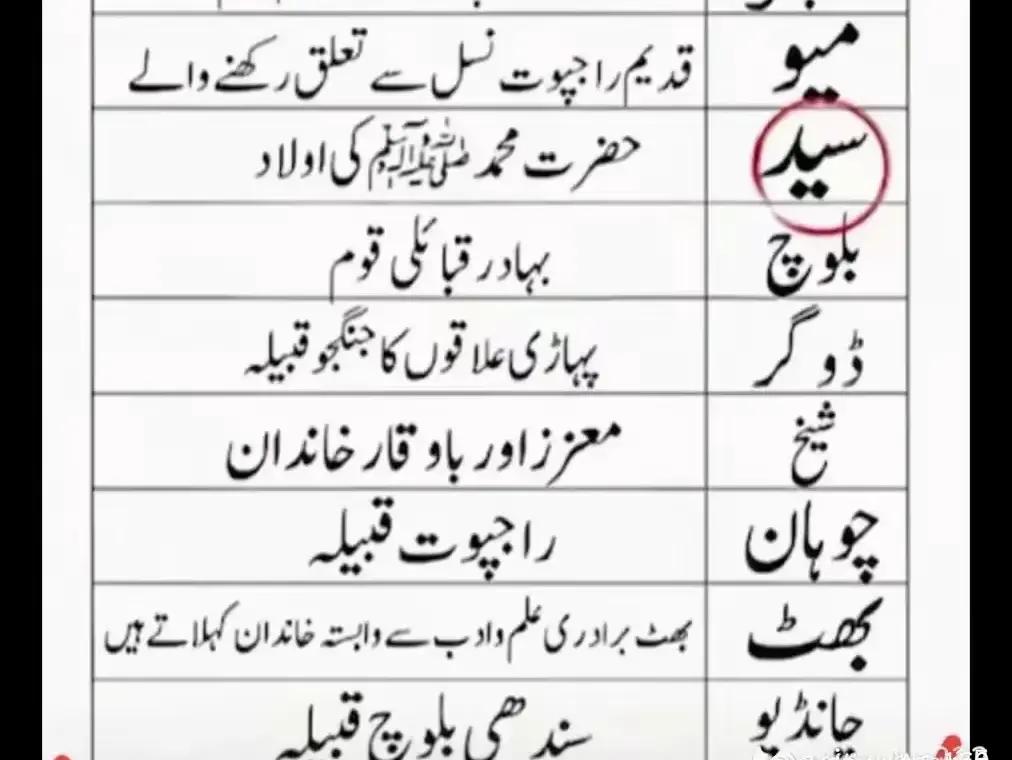 میو قدیم راجپوت نسل سے تعلق رکھنے والے
سید حضرت محمد ﷺ کی اولاد
بلوچ بہادر قبائلی قوم
ڈوگر پہاڑی علاقوں کا جنگجو قبیلہ
شیخ معزز اور باوقار خاندان
چوہان راجپوت قبیلہ
بھٹ بھٹ برادری علم و ادب سے وابستہ خاندان کہلاتے ہیں
چانڈیو سندھی بلوچ قبیلہ